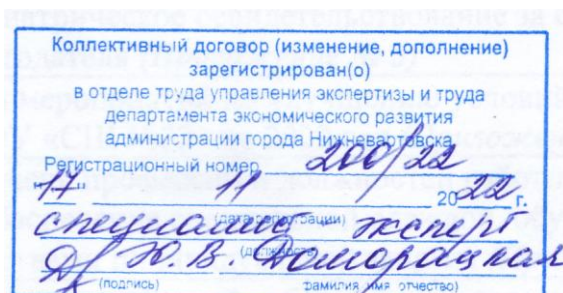 Коллективный договор (изменение, дополнение)
зарегистрирован(о)
в отделе труда управления экспертизы и труда
департамента экономического развития
администрации города Нижневартовска
Регистрационный номер 200/22
"17" 11 2022 г.
специалист - эксперт
(дата регистрации)
(должность)
Ю.В. Доморацкая
(подпись) фамилия, имя, отчество)